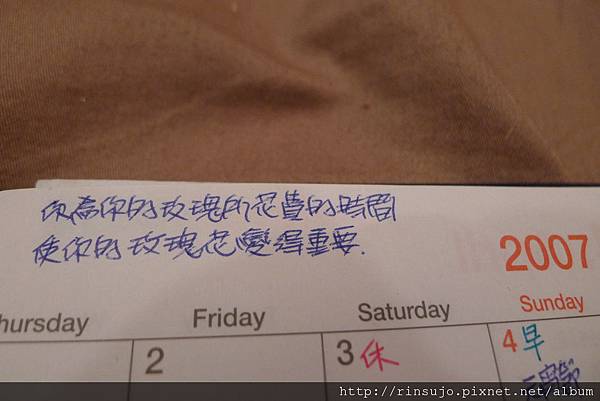 你為你的玫瑰所花費的時間
使你的玫瑰花變得重要.
2007
hursday Friday Saturday Sunday
2 3 休 4 早
http://rinsujo.pixnet.net/album